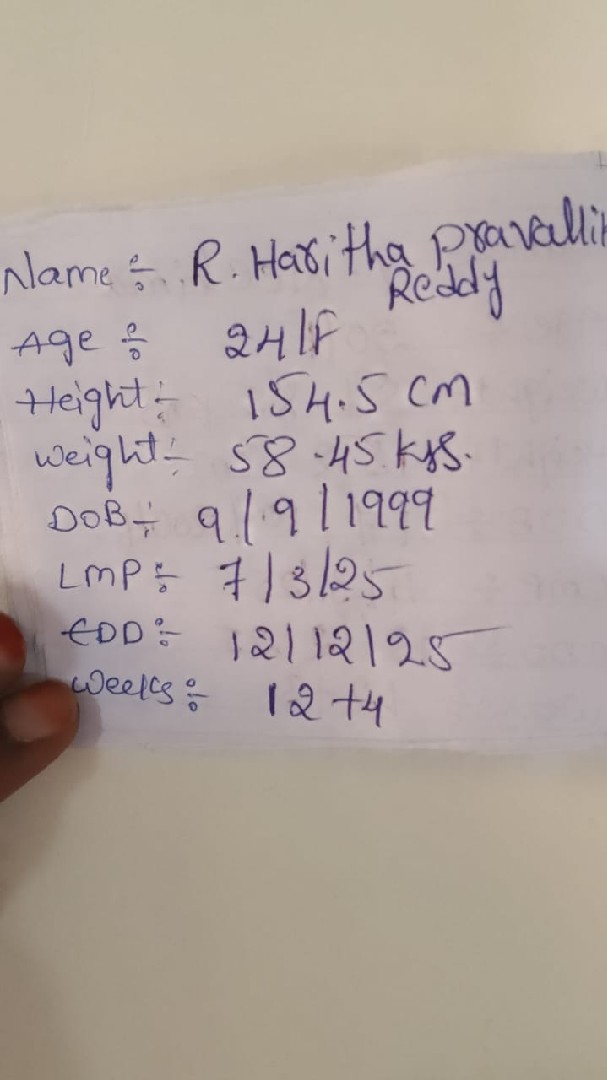 Name ÷ R. Haritha Pravalli
Reddy
Age ÷ 24/F
Height ÷ 154.5 cm
Weight ÷ 58.45 kgs.
DOB ÷ 9/9/1999
LMP ÷ 7/3/25
EDD ÷ 12/12/25
Weeks ÷ 12+4